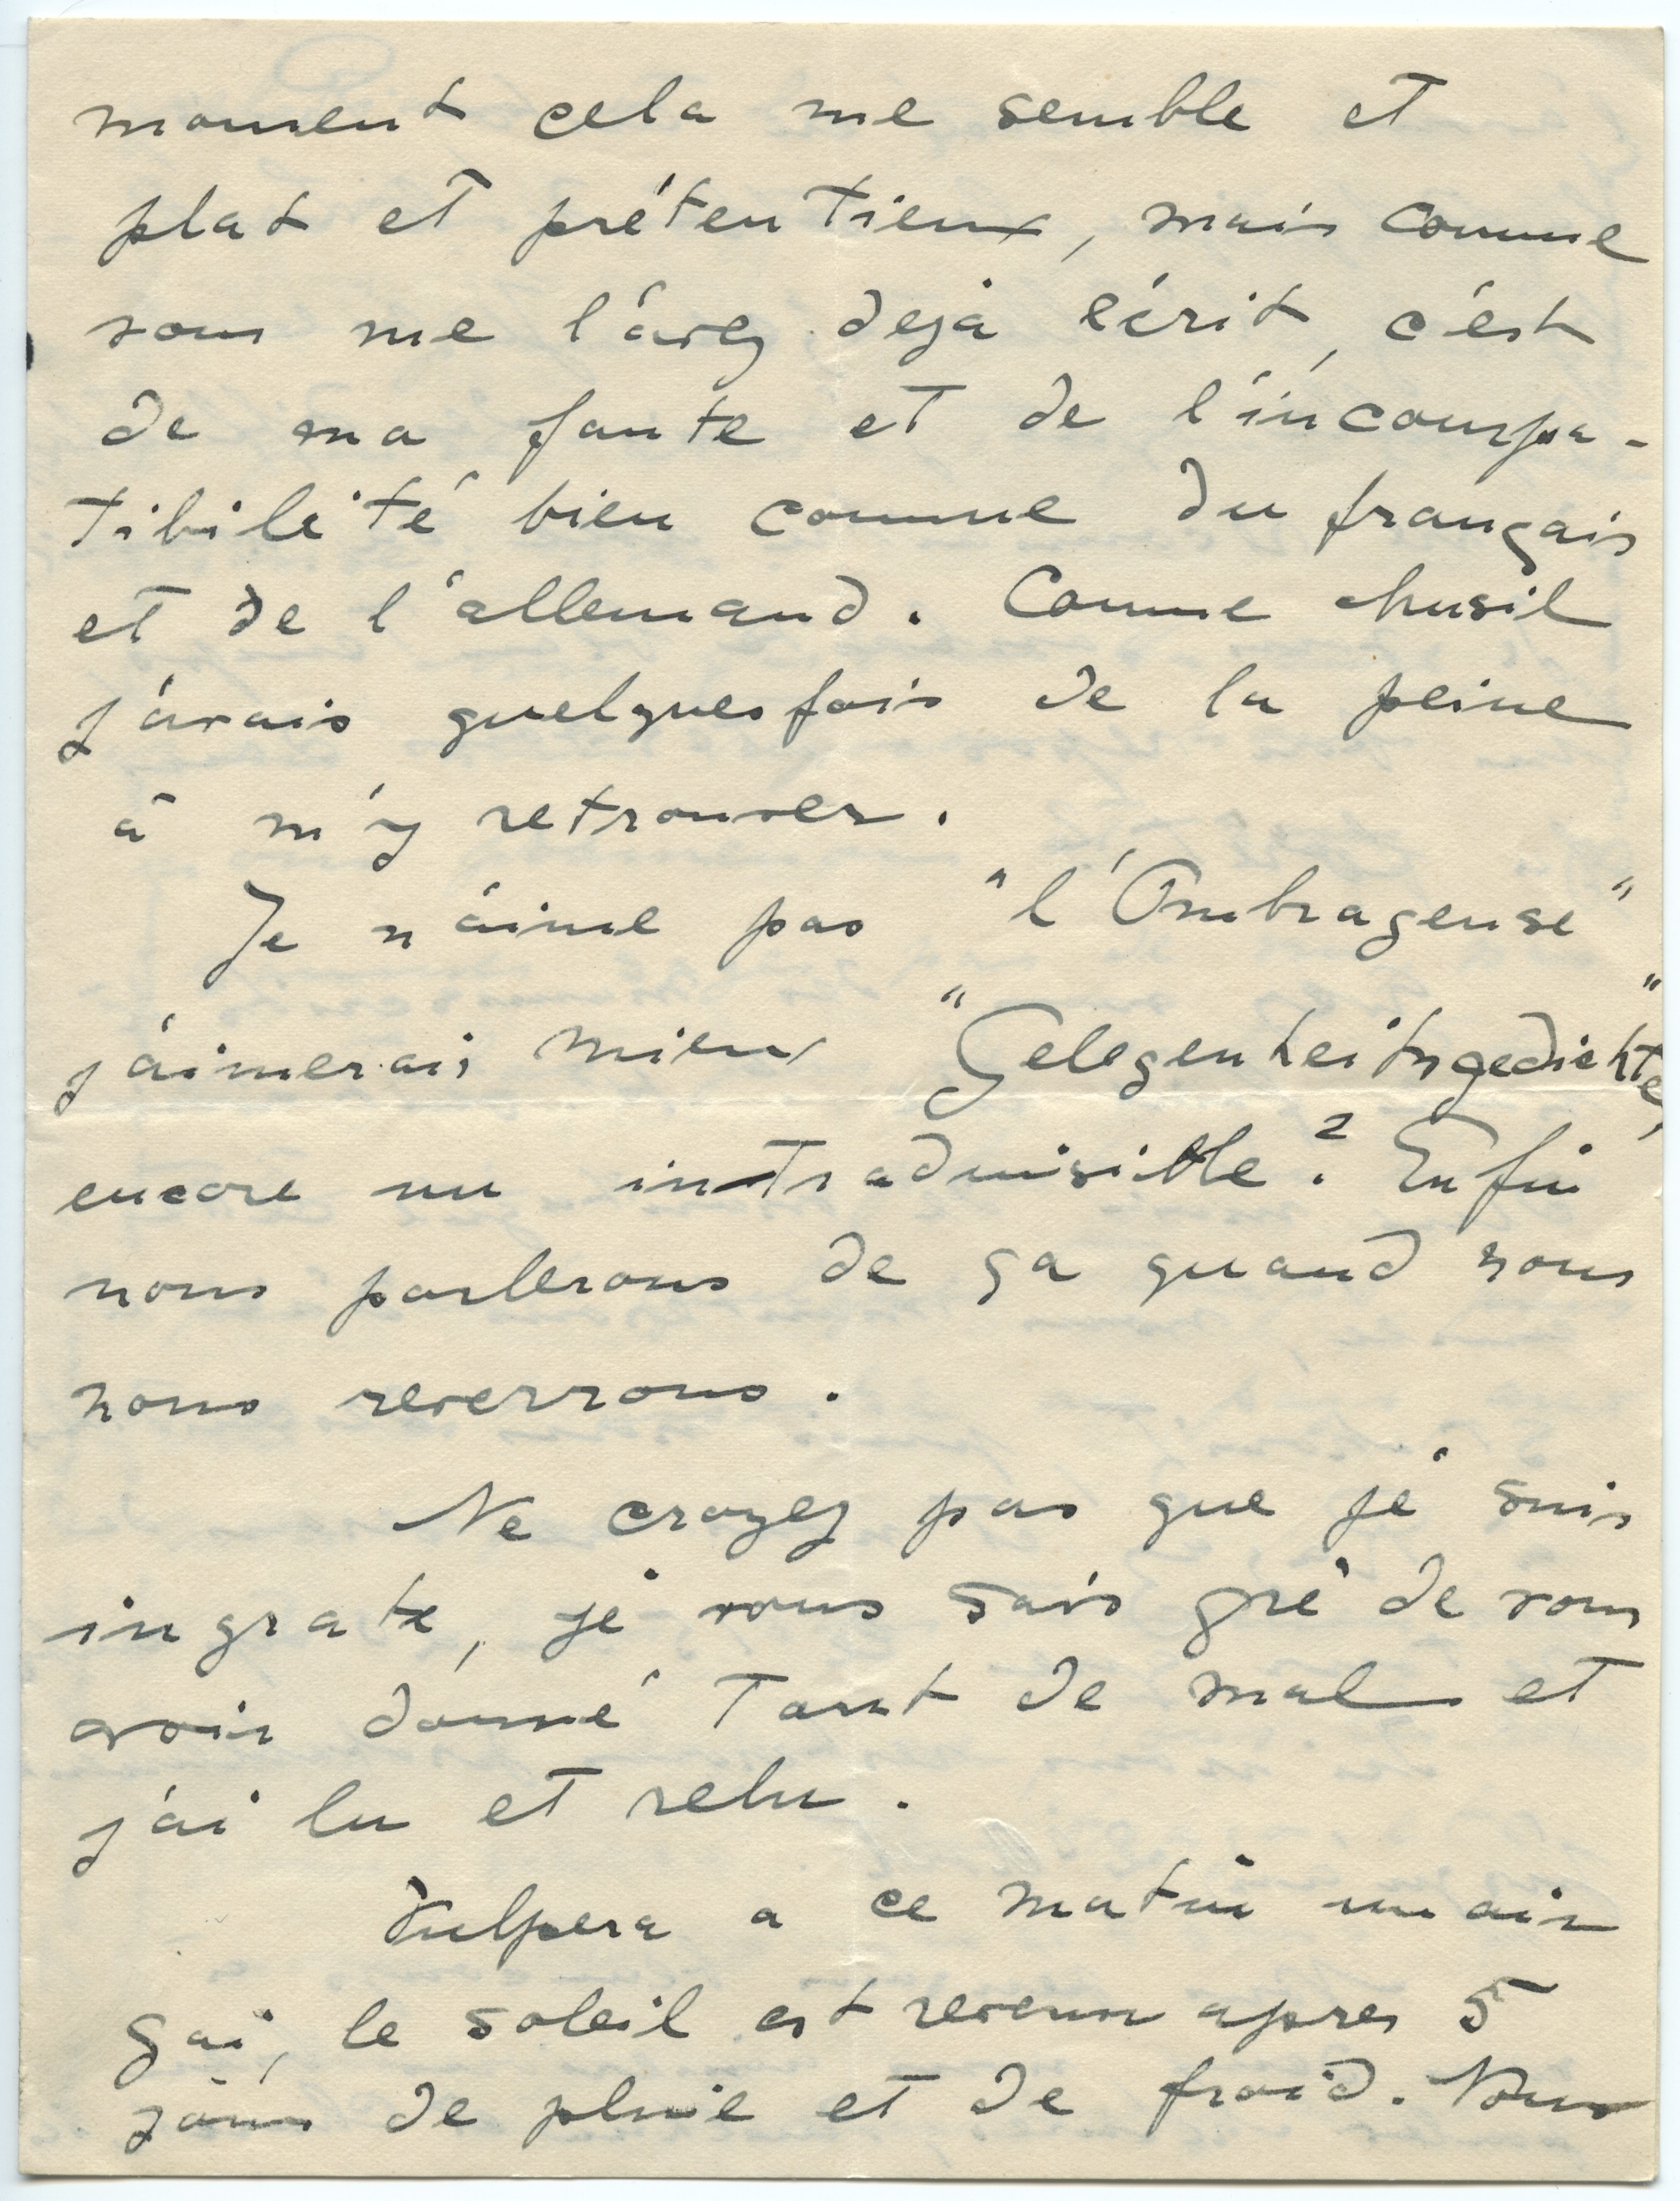 moment cela me semble et
plat et prétentieux, mais comme
vous me l'avez dejà écrit, c'est
de ma faute et de l'incompa-
tibilité bien comme du français
et de l'allemand. Comme Musil
j'avais quelquesfois de la peine
à m'y retrouver.
Je n'aime pas "l'Ombrageuse"
j'aimerais mieux "Gelegenheitsgedichte",
encore un intraduisible? Enfin
nous parlerons de ça quand nous
nous reverrons.
Ne croyez pas que je suis
ingrate, je vous sais gré de vous
avoir donné tant de mal et
j'ai lu et relu.
Vulpera a ce matin un air
gai, le soleil est revenu apres 5
jours de pluie et de froid. Nous